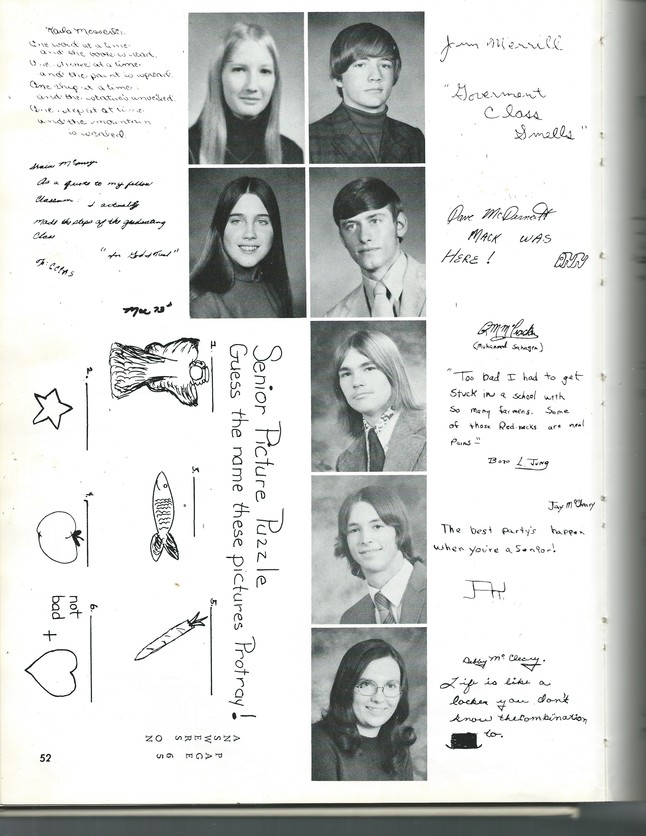 Karla Messer
One word at a time
and the book is read.
One stroke at a time
and the paint is spread.
One chip at a time
and the statue's unveiled.
One step at time
and the mountain
is
As a quote to my fellow
Classmen: I actually
made the steps of the graduating
Class
Jim Merrill
"Goverment
Class
Smells"
Dave McDermott
MACK WAS
HERE!
(Mohamed
"Too bad I had to get
Stuck in a school with
So many farmers. Some
of those Red-necks are real
Pains"
Jay McCleary
The best party's happen
when you're a Senior!
Debby McCleary.
Life is like a
locker you don't
know the combination
to.
Senior Picture Puzzle
Guess the name these pictures Protray!
1.
2.
3.
4.
5.
6.
not
bad +
ANSWERS ON
PAGE 65
52